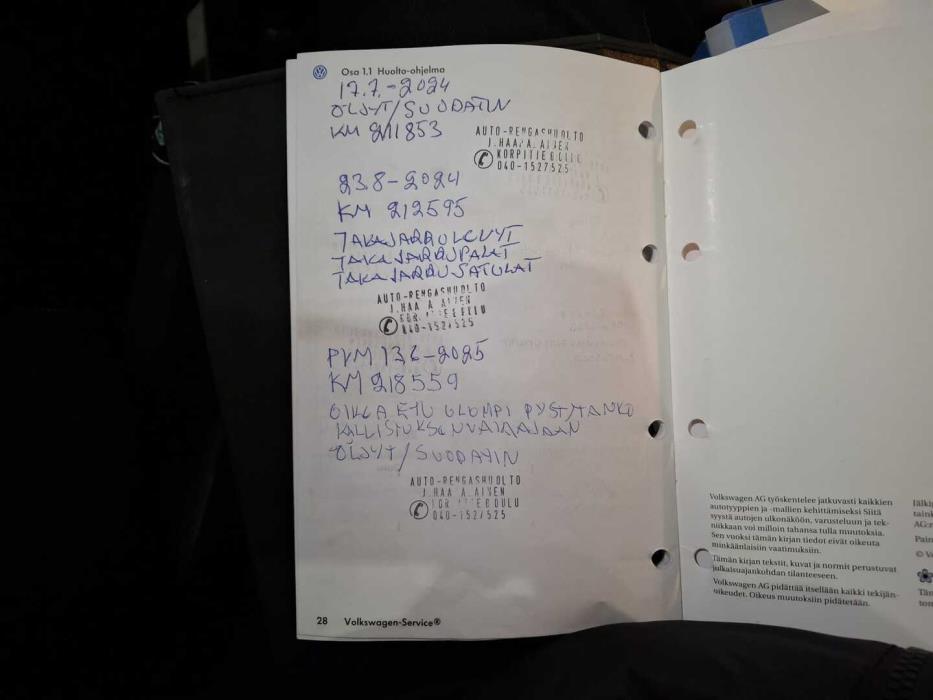 Osa 1.1 Huolto-ohjelma
17.7.-2024
ÖLJYT/SUODATIN
KM 211853
AUTO-RENGASHUOLTO
J.HAA A. A
KORPITIE OULU
040-1527525
23.8-2024
KM 212595
TAKAJARRULEVYT
TAKAJARRUPALAT
TAKAJARRUSATULAT
AUTO-RENGASHUOLTO
J.HAA A AINEN
OULU
040-1527525
PVM 13.6-2025
KM 218559
OIKEA ETU ULOMPI PYSTYTANKO
KALLISTUKSENVAIMAAJAAN
ÖLJYT/SUODATIN
AUTO-RENGASHUOLTO
J.HAA A. AINEN
OULU
040-1527525
28 Volkswagen-Service®
Volkswagen AG työskentelee jatkuvasti kaikkien
autotyyppien ja -mallien kehittämiseksi Siitä
syystä autojen ulkonäköön, varusteluun ja tek-
niikkaan voi milloin tahansa tulla muutoksia.
Sen vuoksi tämän kirjan tiedot eivät oikeuta
minkäänlaisiin vaatimuksiin.
Tämän kirjan tekstit, kuvat ja normit perustuvat
julkaisuajankohdan tilanteeseen.
Volkswagen AG pidättää itsellään kaikki tekijän-
oikeudet. Oikeus muutoksiin pidätetään.